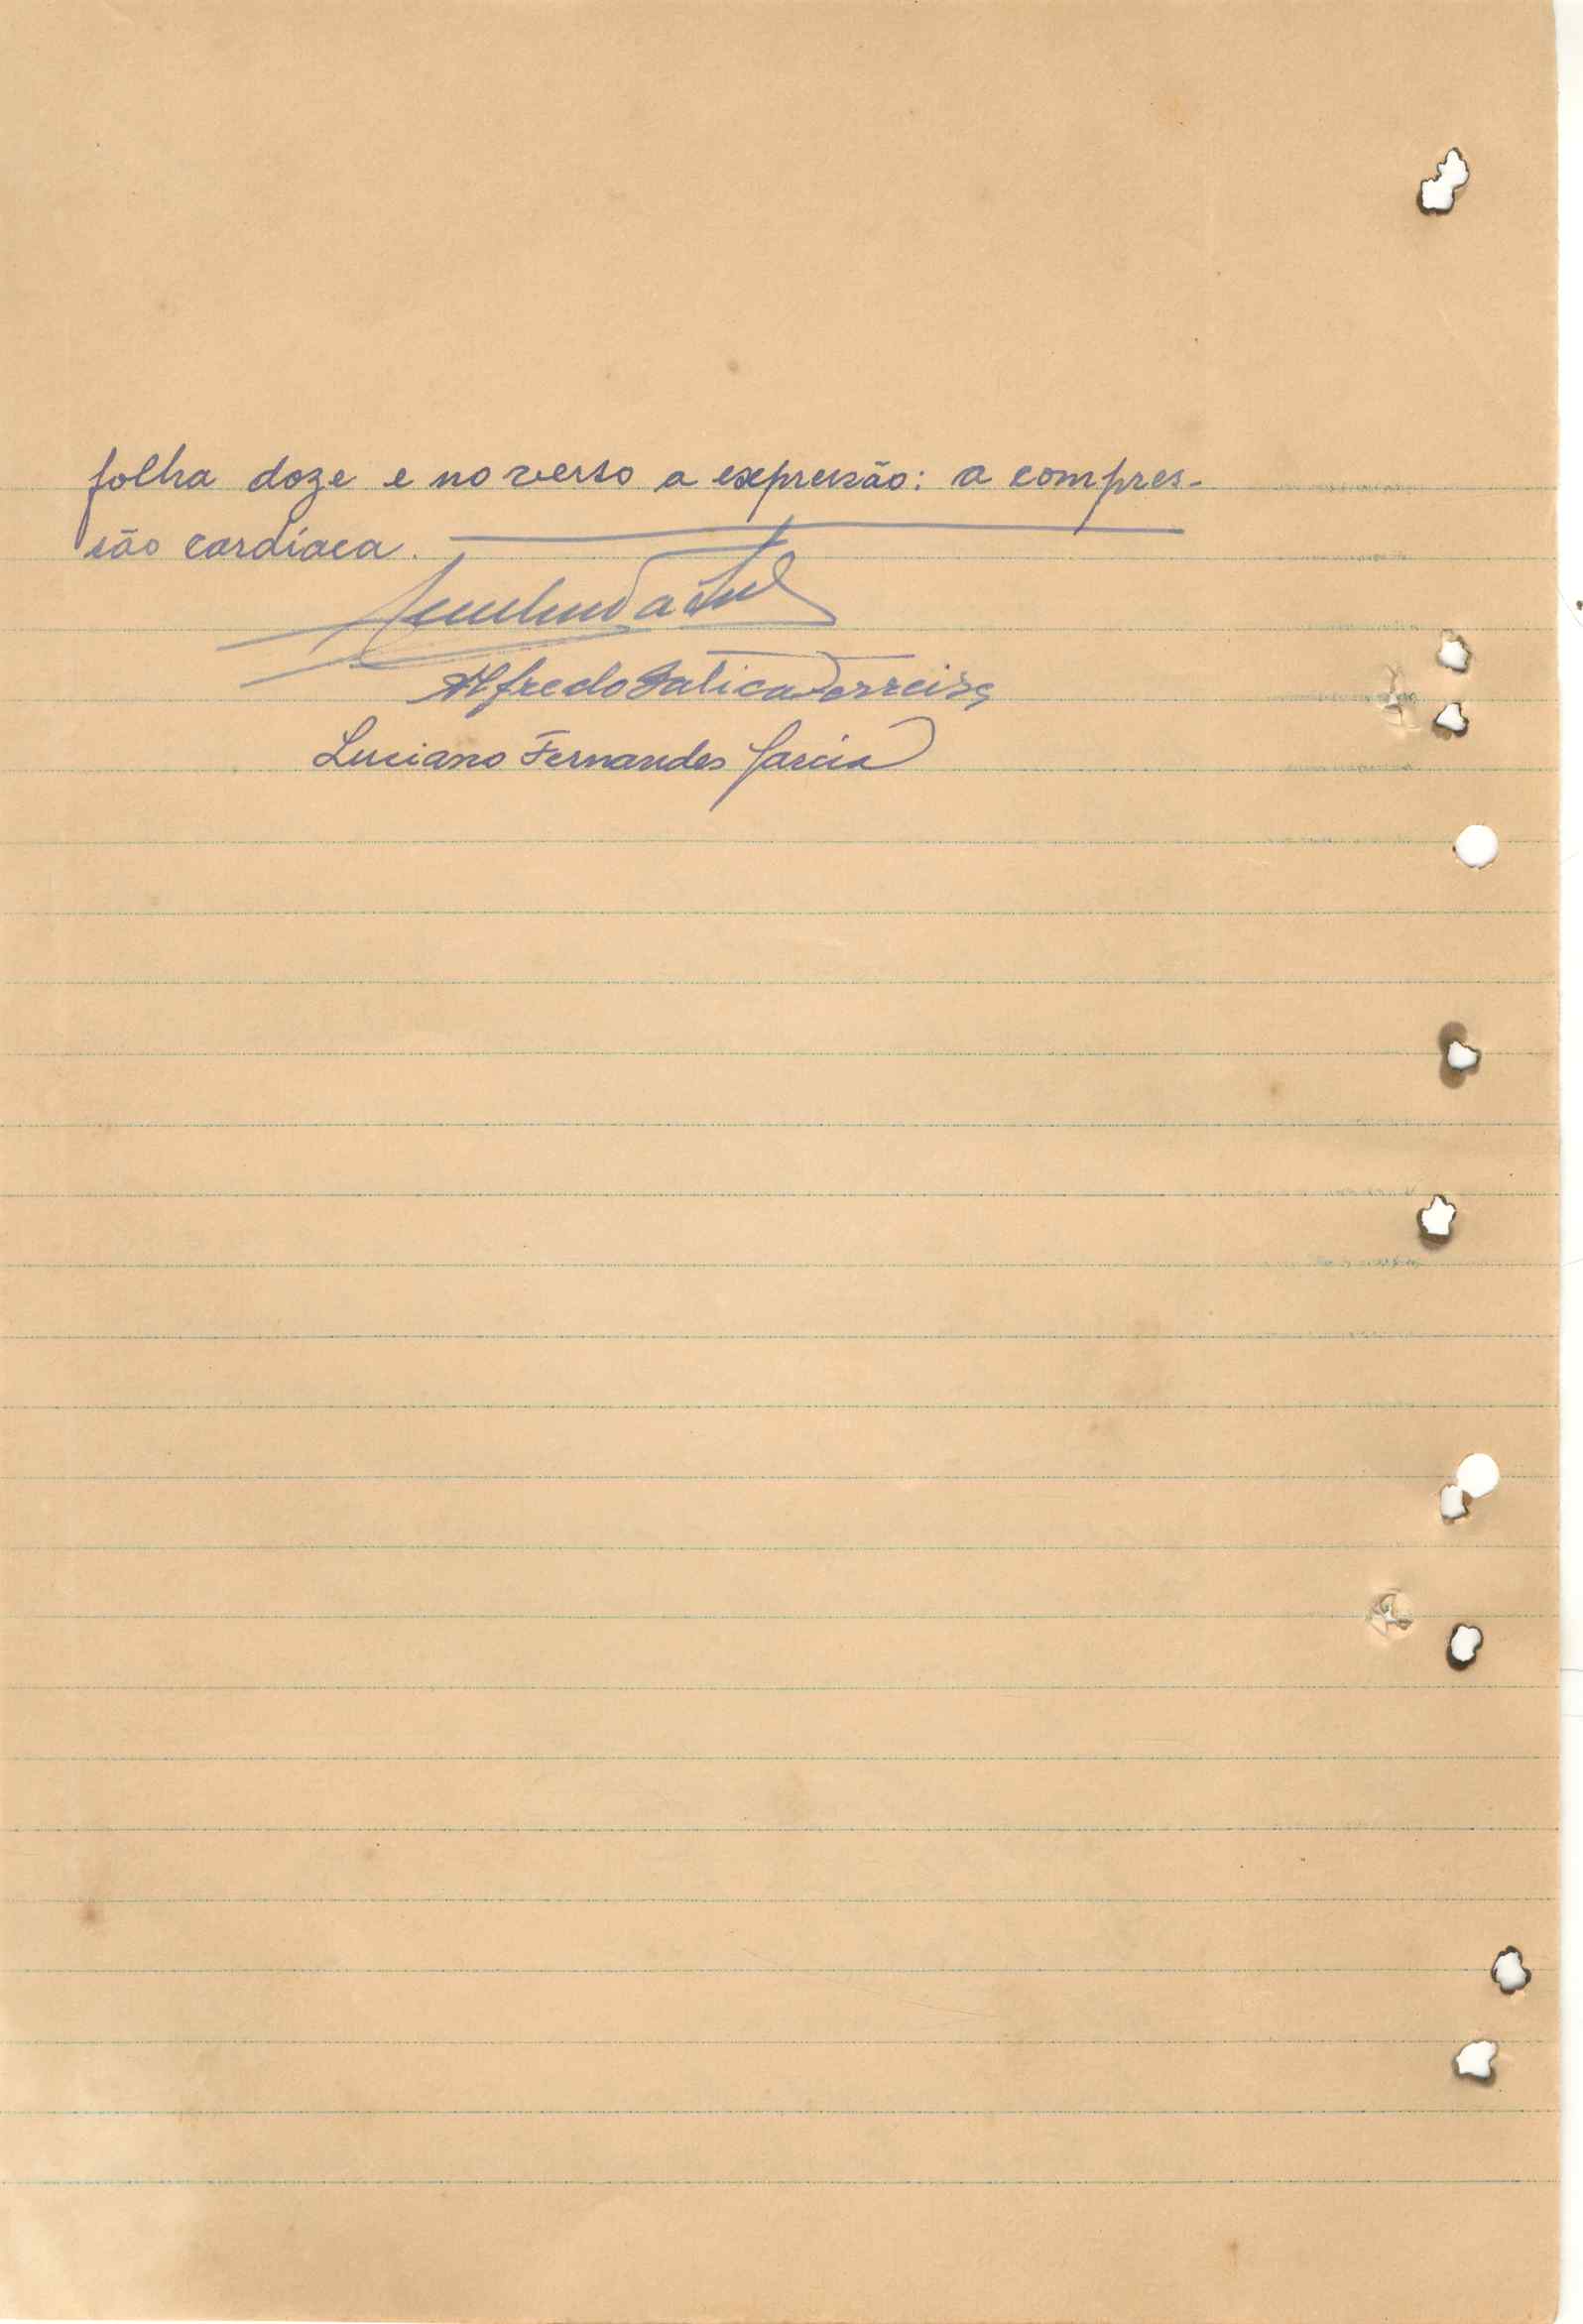 folha doze e no verso a expressão: a compres-
são cardíaca.
Alfredo Ferreira
Luciano Fernandes Garcia